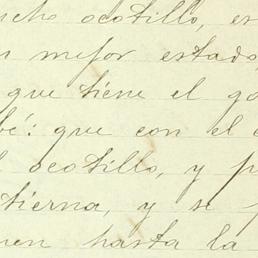 ucho ocotillo, es
n mejor estado,
que tiene el go
bé: que con el
l ocotillo, y p
tierna, y se
nen hasta la